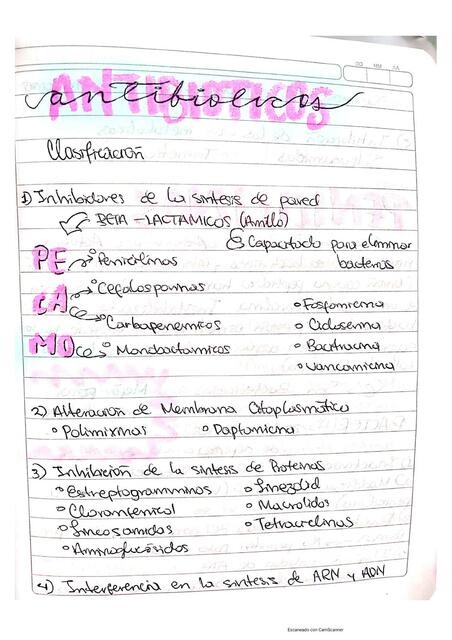 ANTIBIOTICOS
antibioticos
Clasificación
1) Inhibidores de la sintesis de pared
BETA-LACTAMICOS (Anillo)
Capacitado para eliminar
bacterias
PE Penicilinas
CA Cefalosporinas
Carbapenemicos
MO Monobactamicos
Fosfomicina
Cicloserina
Bacitracina
Vancomicina
2) Alteración de Membrana Citoplasmática
Polimixinas
Daptomicina
3) Inhibición de la sintesis de Proteinas
Estreptograminas
Linezolid
Cloranfenicol
Macrolidos
Lincosamidas
Tetraciclinas
Aminoglucósidos
4) Interferencia en la sintesis de ARN y ADN
Escaneado con CamScanner